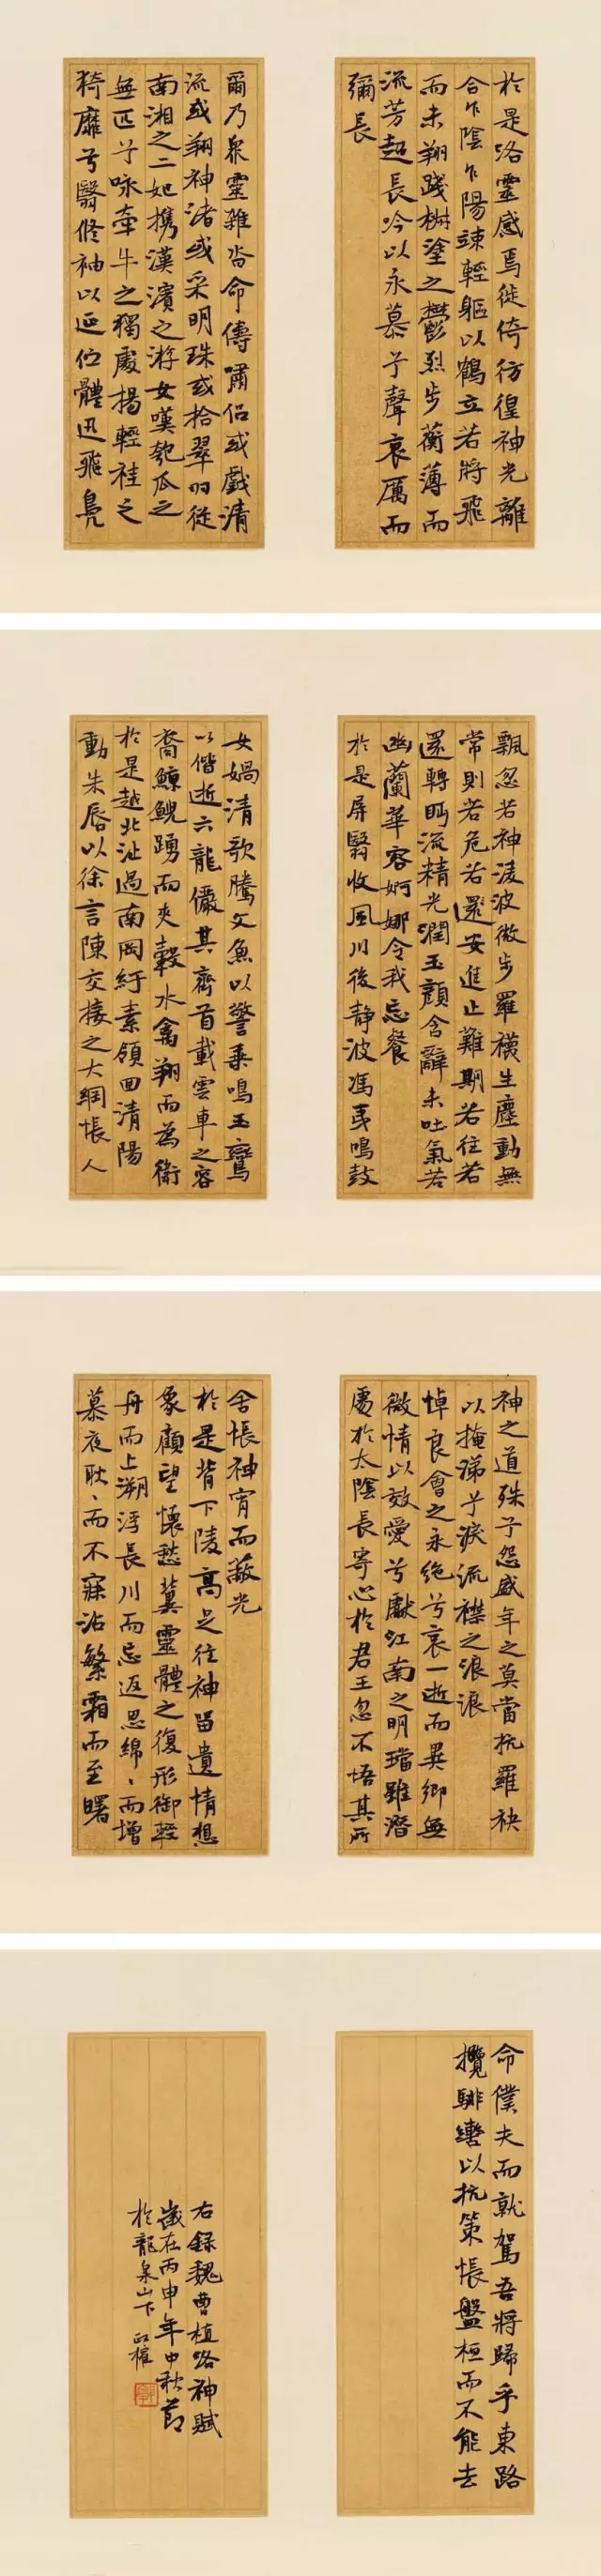 於是洛靈感焉徙倚彷徨神光離
合乍陰乍陽竦輕軀以鶴立若將飛
而未翔踐椒塗之鬱烈步蘅薄而
流芳超長吟以永慕兮聲哀厲而
彌長
爾乃衆靈雜沓命儔嘯侶或戲清
流或翔神渚或采明珠或拾翠羽從
南湘之二妃携漢濱之游女嘆匏瓜之
無匹兮咏牽牛之獨處揚輕袿之
猗靡兮翳修袖以延佇體迅飛鳧
飄忽若神淩波微步羅襪生塵動無
常則若危若還安進止難期若往若
還轉眄流精光潤玉顏含辭未吐氣若
幽蘭華容婀娜令我忘餐
於是屏翳收風川後靜波馮夷鳴鼓
女媧清歌騰文魚以警乘鳴玉鸞
以偕逝六龍儼其齊首載雲車之容
裔鯨鯢踴而夾轂水禽翔而為衛
於是越北沚過南岡紆素領回清陽
動朱唇以徐言陳交接之大綱悵人
神之道殊兮怨盛年之莫當抗羅袂
以掩涕兮淚流襟之浪浪
悼良會之永絕兮哀一逝而異鄉無
微情以效愛兮獻江南之明璫雖潛
處於太陰長寄心於君王忽不悟其所
舍悵神宵而蔽光
於是背下陵高足往神留遺情想
象顧望懷愁冀靈體之復形御輕
舟而上溯浮長川而忘返思綿、而增
慕夜耿、而不寐沾繁霜而至曙
命僕夫而就駕吾將歸乎東路
攬騑轡以抗策悵盤桓而不能去
右錄魏曹植洛神賦
歲在丙申年中秋節
於龍泉山下